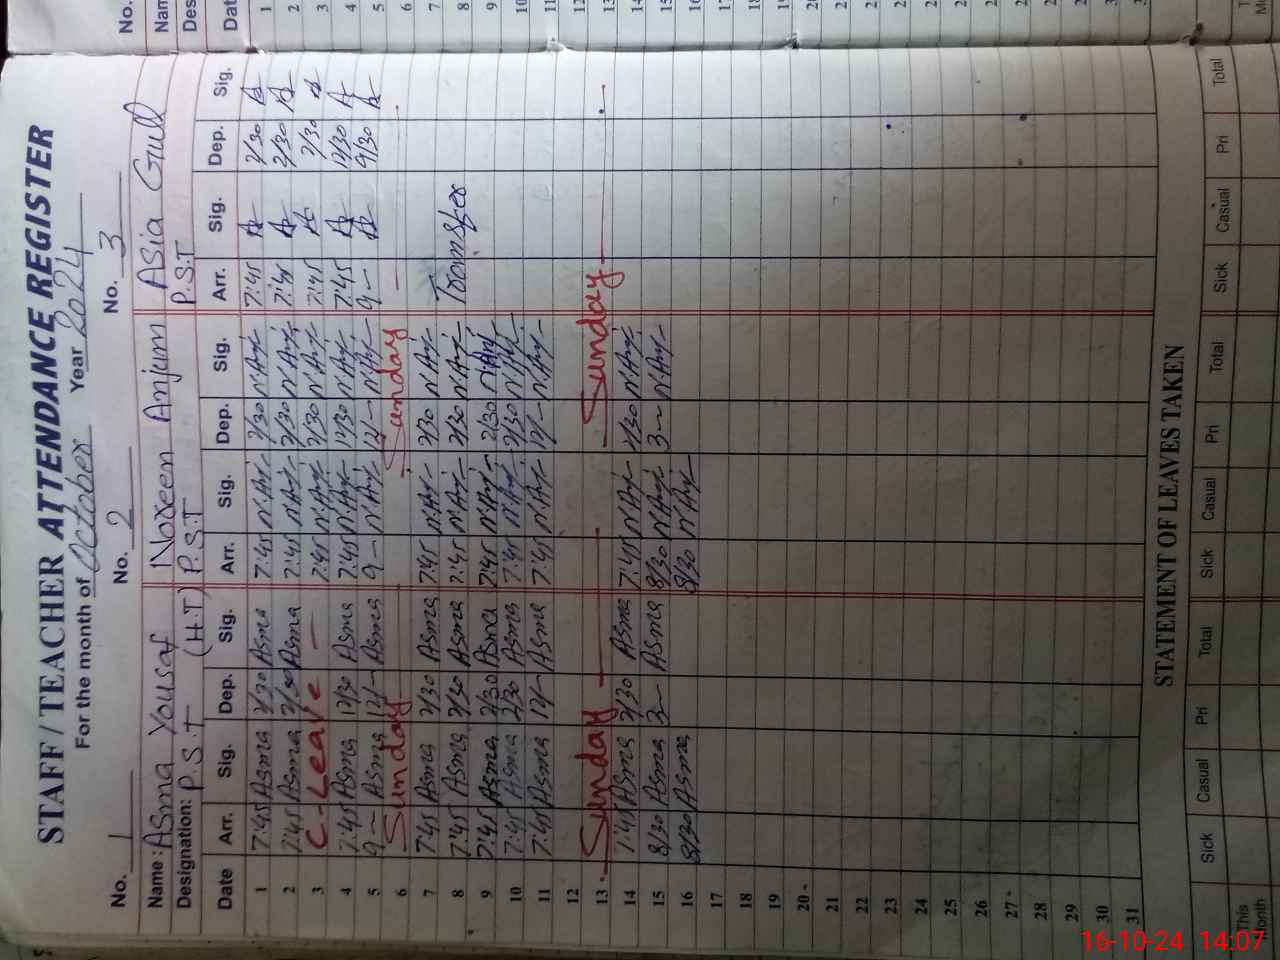 STAFF / TEACHER ATTENDANCE REGISTER
For the month of October Year 2024
No. 1 No. 2 No. 3
Name: Asma Yousaf Noreen Anjum Asia Gull
Designation: P.S.T (H.T) P.S.T P.S.T
Date Arr. Sig. Dep. Sig. Arr. Sig. Dep. Sig. Arr. Sig. Dep. Sig.
1 7:45 Asma 2/30 Asma 7:45 2/30 7:45 2/30
2 7:45 Asma 2/30 Asma 7:45 2/30 7:45 2/30
3 C-Leave 7:45 2/30 7:45 2/30
4 7:45 Asma 12/30 Asma 7:45 12/30 7:45 12/30
5 9 Asma 12/- Asma 9 12/- 9 9/30
6 Sunday Sunday
7 7:45 Asma 2/30 Asma 7:45 2/30
8 7:45 Asma 2/30 Asma 7:45 2/30
9 7:45 Asma 2/30 Asma 7:45 2/30
10 7:45 Asma 2/30 Asma 7:45 2/30
11 7:45 Asma 12/- Asma 7:45 12/-
12
13 Sunday Sunday
14 7:45 Asma 2/30 Asma 7:45 2/30
15 8/30 Asma 3 Asma 8/30 3
16 8/30 Asma 8/30
17
18
19
20
21
22
23
24
25
26
27
28
29
30
31
STATEMENT OF LEAVES TAKEN
Sick Casual Pri Total Sick Casual Pri Total Sick Casual Pri Total
This Month
16-10-24 14:07